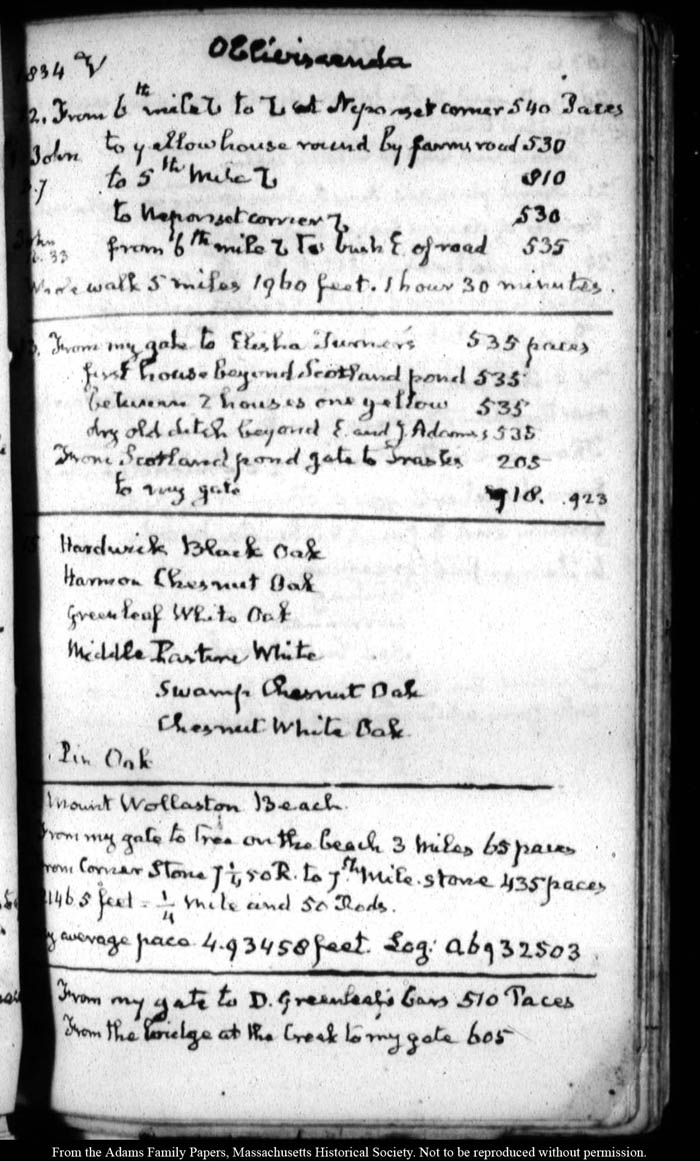 Obliviscenda
1834 V
12. From 6th mile to at Neponset corner 540 Paces
to yellow house round by farms road 530
John
to 5th Mile 810
5.7
to Neponset corner 530
John
6. 33 from 6th mile To bush E. of road 535
Whole walk 5 miles 1960 feet. 1 hour 30 minutes.
13. From my gate to Elisha Turner's 535 paces
first house beyond Scotland pond 535
between 2 houses one yellow 535
dry old ditch beyond E. and J Adams's 535
From Scotland pond gate to Trask's 205
to my gate 918. 923
Hardwick Black Oak
Harmon Chesnut Oak
Greenleaf White Oak
Middle Pasture White
Swamp Chesnut Oak
Chesnut White Oak
Pin Oak
Mount Wollaston Beach.
From my gate to Tree on the beach 3 Miles 65 paces
From Corner Stone 7 1/4 50 R. to 7th Mile. stone 435 paces
2146 5 feet = 1/4 mile and 50 Rods.
My average pace 4.93458 feet. Log: 0.6932503
From my gate to D. Greenleaf's bars 510 Paces
From the bridge at the Creek to my gate 605
From the Adams Family Papers, Massachusetts Historical Society. Not to be reproduced without permission.